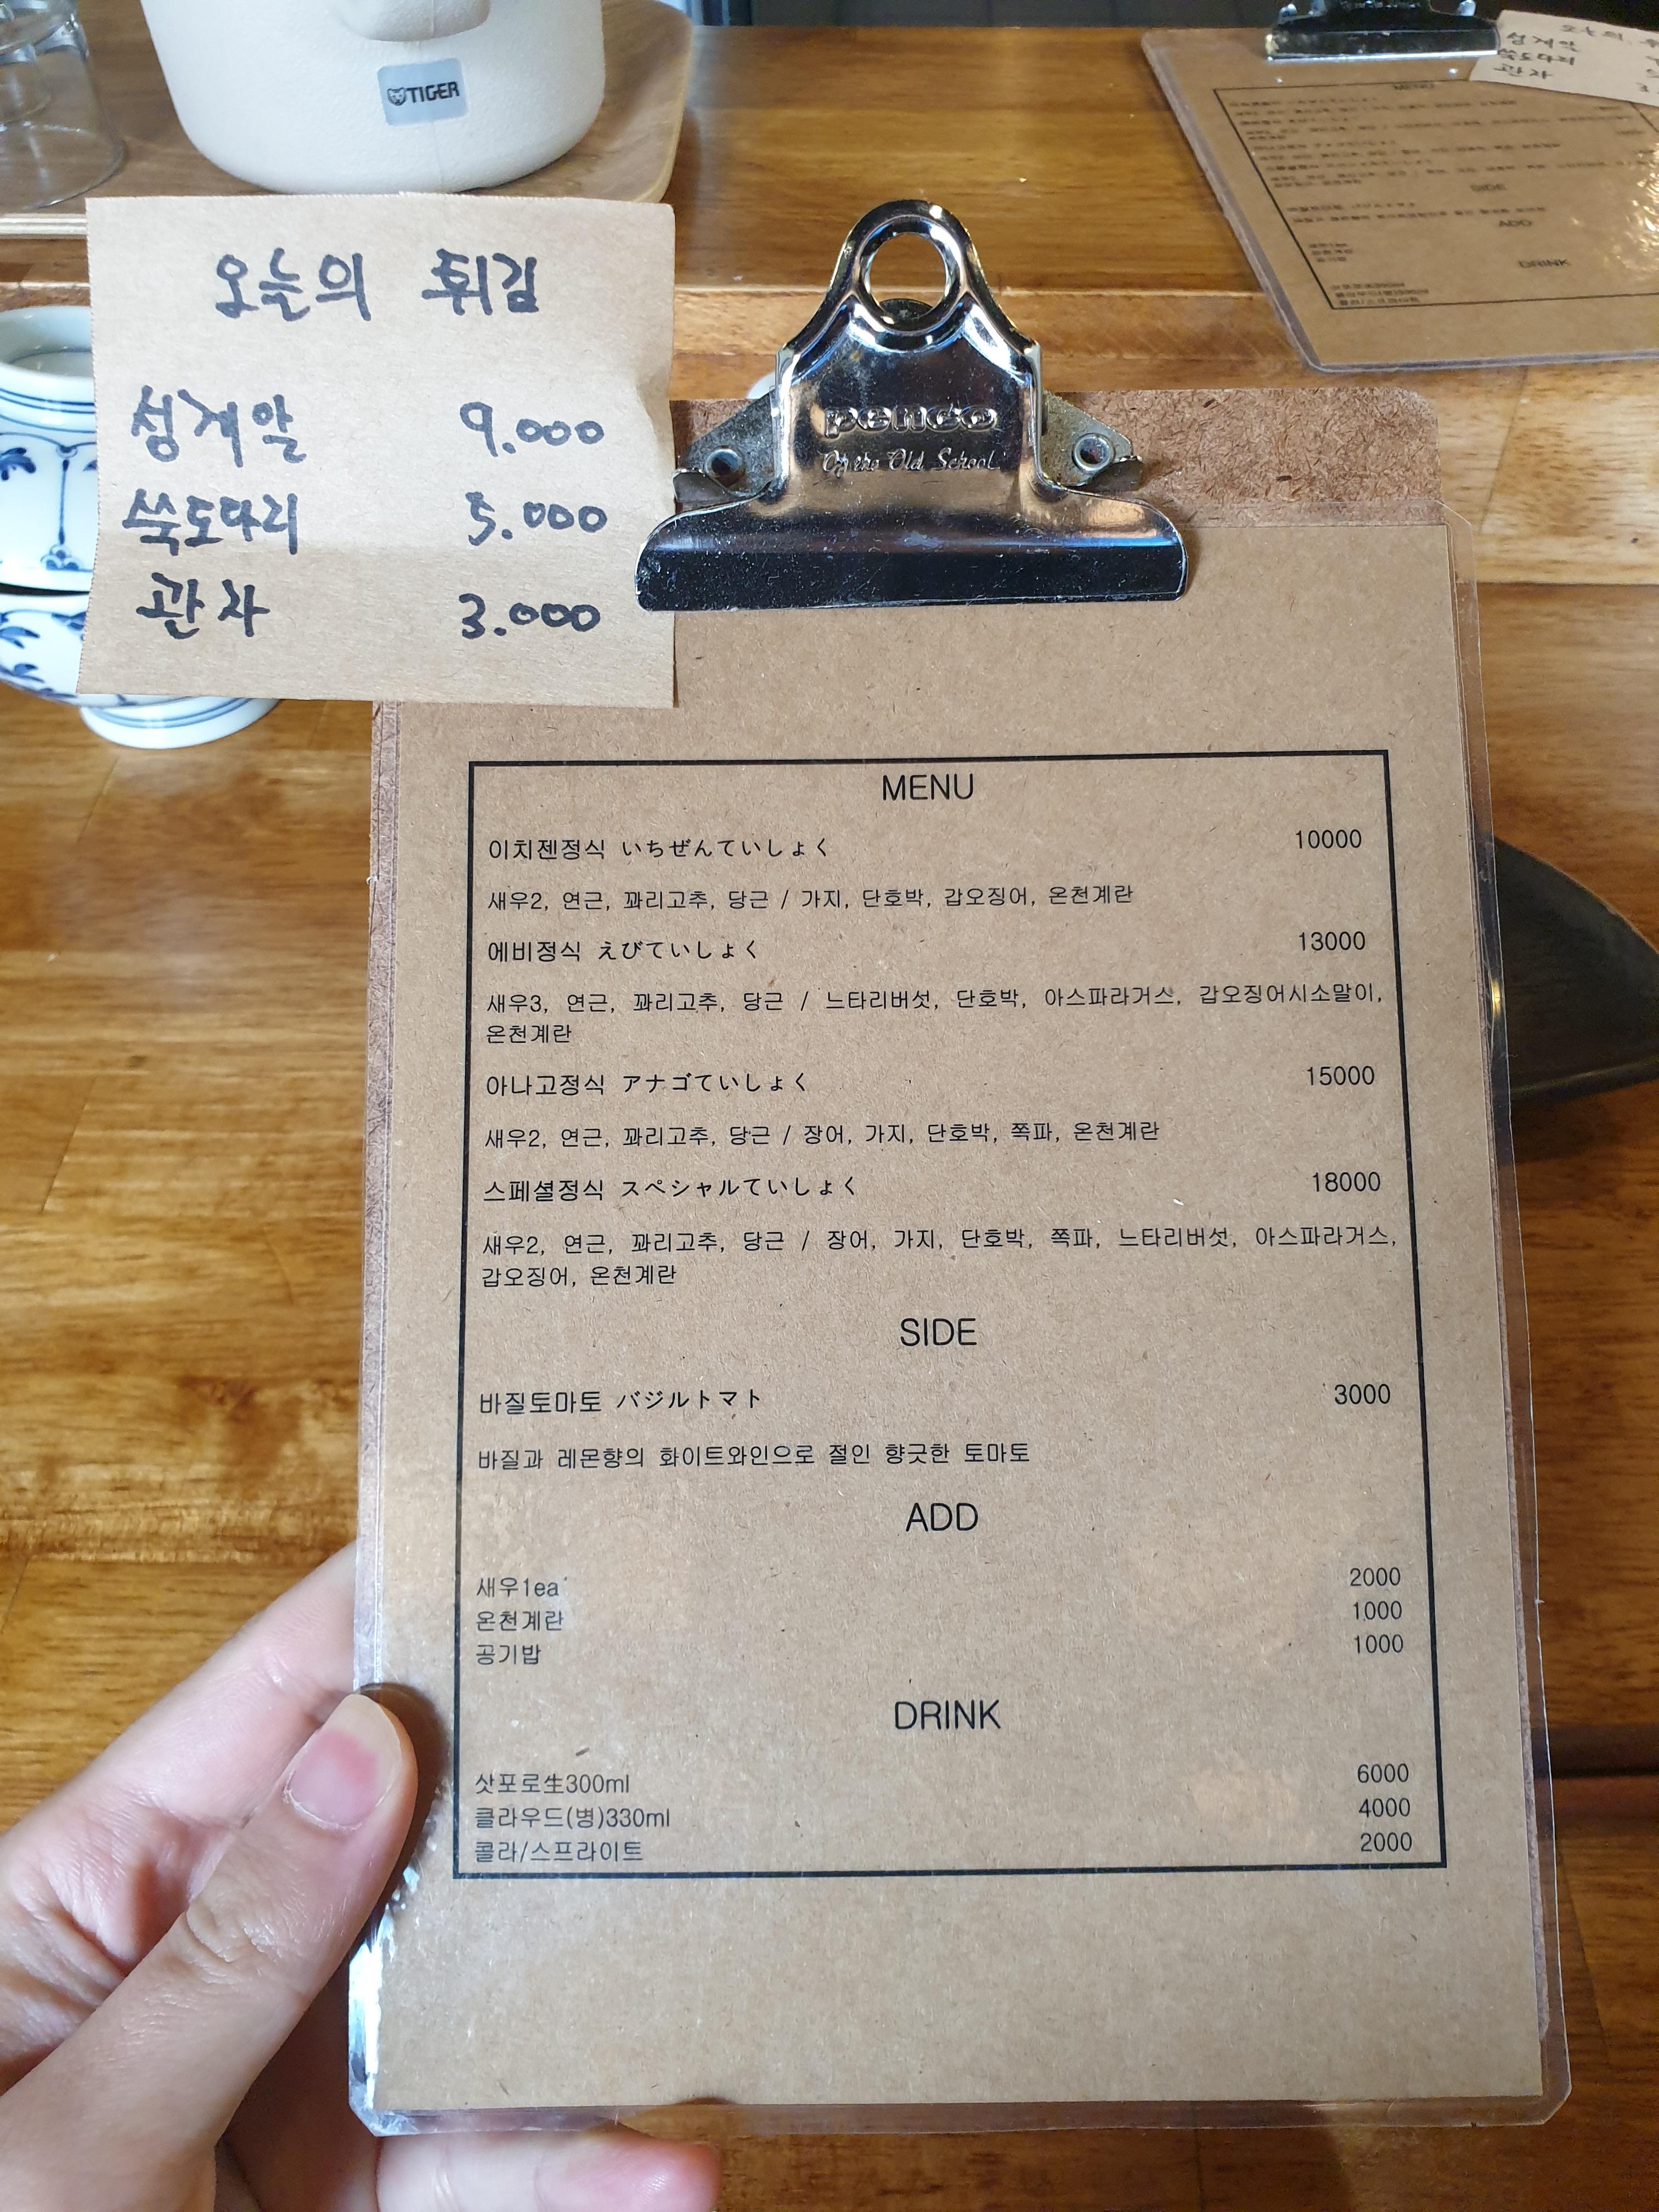 TIGER
오늘의 튀김
성게알 9.000
쑥도다리 5.000
관자 3.000
penco
Of the Old School
MENU
이치젠정식 いちぜんていしょく 10000
새우2, 연근, 꽈리고추, 당근 / 가지, 단호박, 갑오징어, 온천계란
에비정식 えびていしょく 13000
새우3, 연근, 꽈리고추, 당근 / 느타리버섯, 단호박, 아스파라거스, 갑오징어시소말이,
온천계란
아나고정식 アナゴていしょく 15000
새우2, 연근, 꽈리고추, 당근 / 장어, 가지, 단호박, 쪽파, 온천계란
스페셜정식 スペシャルていしょく 18000
새우2, 연근, 꽈리고추, 당근 / 장어, 가지, 단호박, 쪽파, 느타리버섯, 아스파라거스,
갑오징어, 온천계란
SIDE
바질토마토 バジルトマト 3000
바질과 레몬향의 화이트와인으로 절인 향긋한 토마토
ADD
새우1ea 2000
온천계란 1000
공기밥 1000
DRINK
삿포로生300ml 6000
클라우드(병)330ml 4000
콜라/스프라이트 2000
성게알
쑥도다리
관자
MENU
SIDE
ADD
DRINK